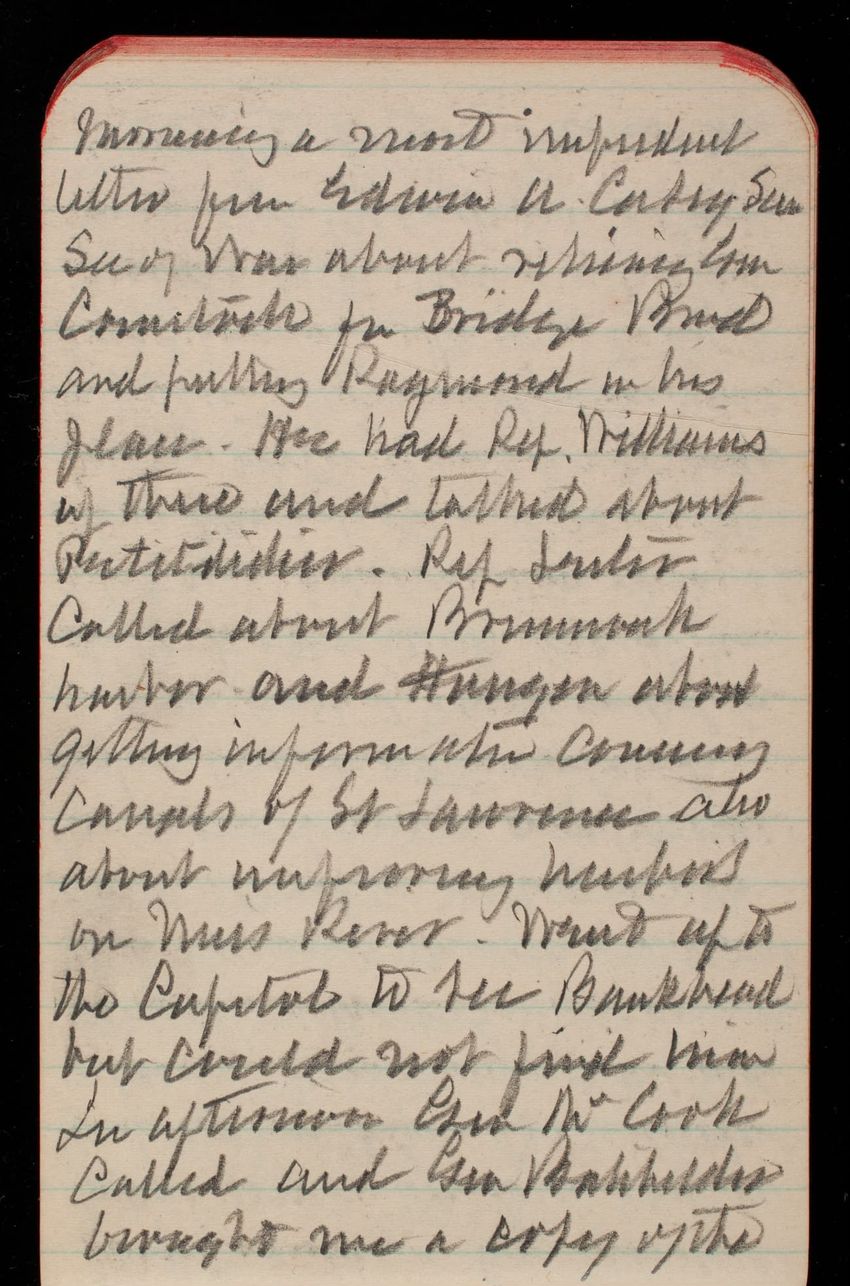 Morning a most impudent
letter from Edwin A. Catsey
Sec of War about retiring Gen
Comstock from Bridge Board
and putting Raymond in his
place. He had Rep. Williams
of there and talked about
Petitdidier. Rep
Called about Brunswick
harbor and Haugen about
getting information concerning
Canals of St Lawrence also
about improving harbors
on Miss River. Went up to
the Capitol to see Bankhead
but could not find him
In afternoon Gen McCook
Called and Gen Batchelder
brought me a copy of the